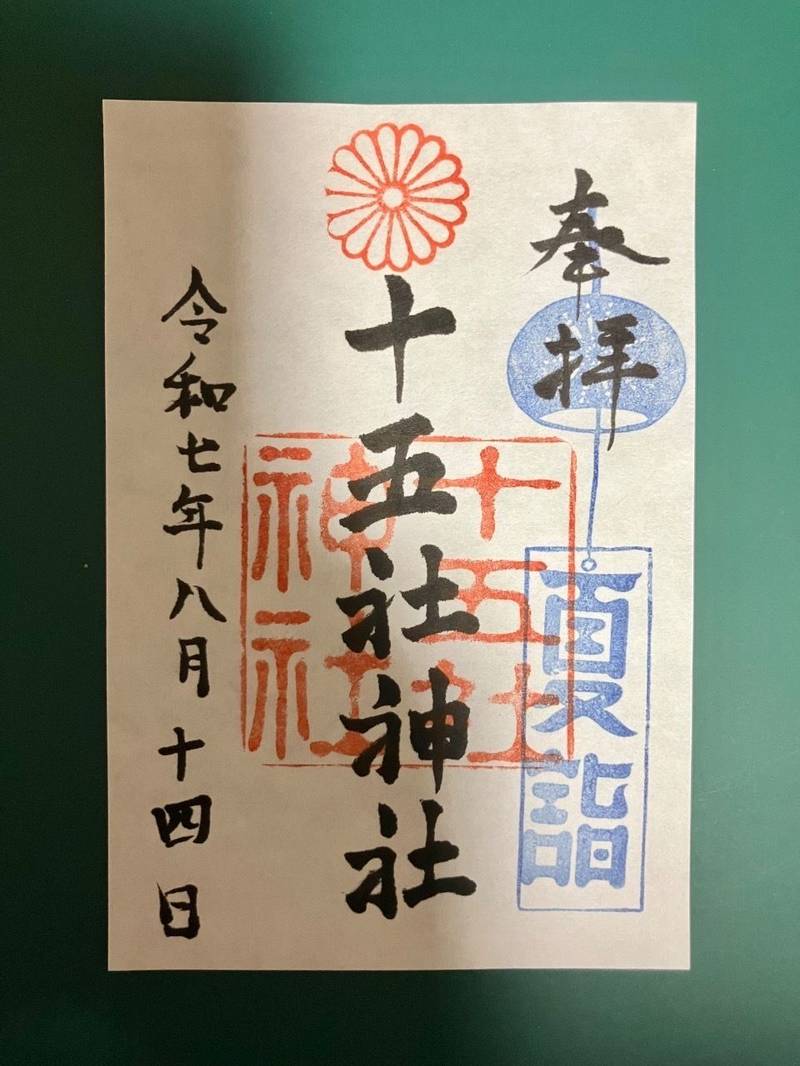 奉拝
夏詣
十五社神社
十五社
神社
令和七年八月十四日